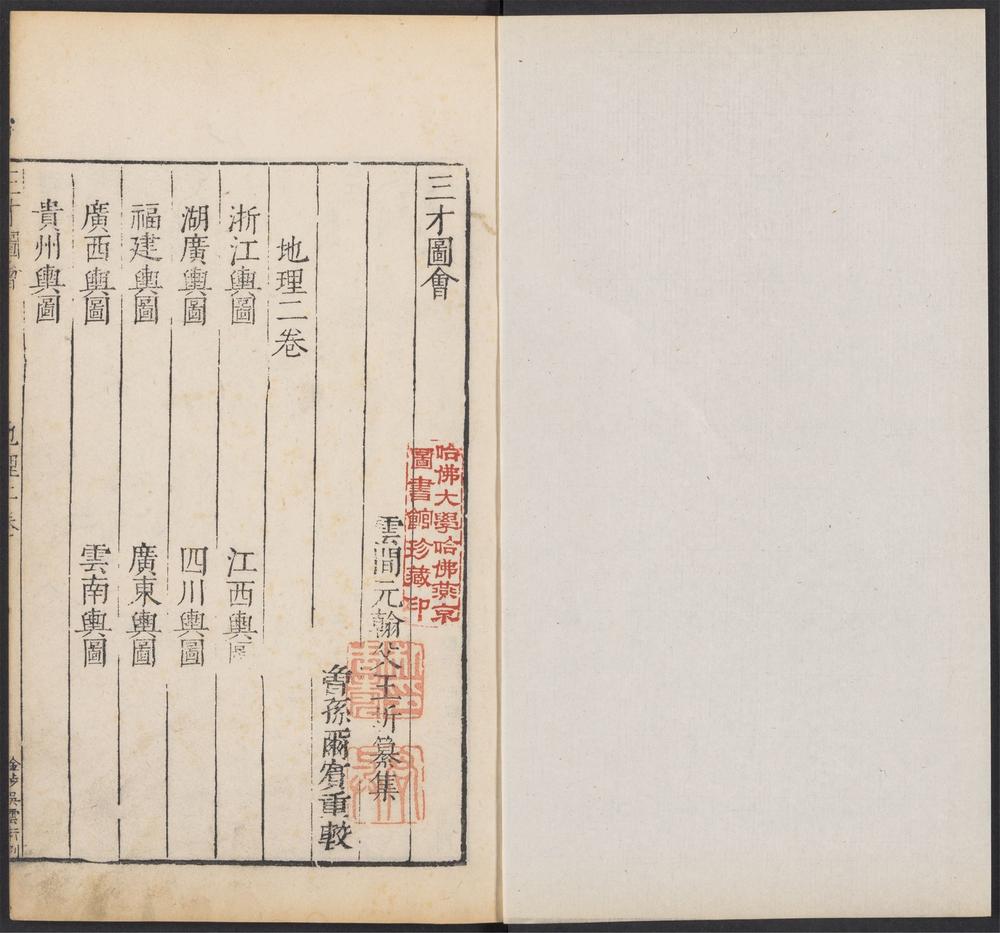 三才圖會
雲間元翰父王圻纂集
曾孫爾賓重較
地理二卷
浙江輿圖
江西輿圖
湖廣輿圖
四川輿圖
福建輿圖
廣東輿圖
廣西輿圖
雲南輿圖
貴州輿圖
三才圖會
地理二卷
哈佛大學哈佛燕京
圖書館珍藏印